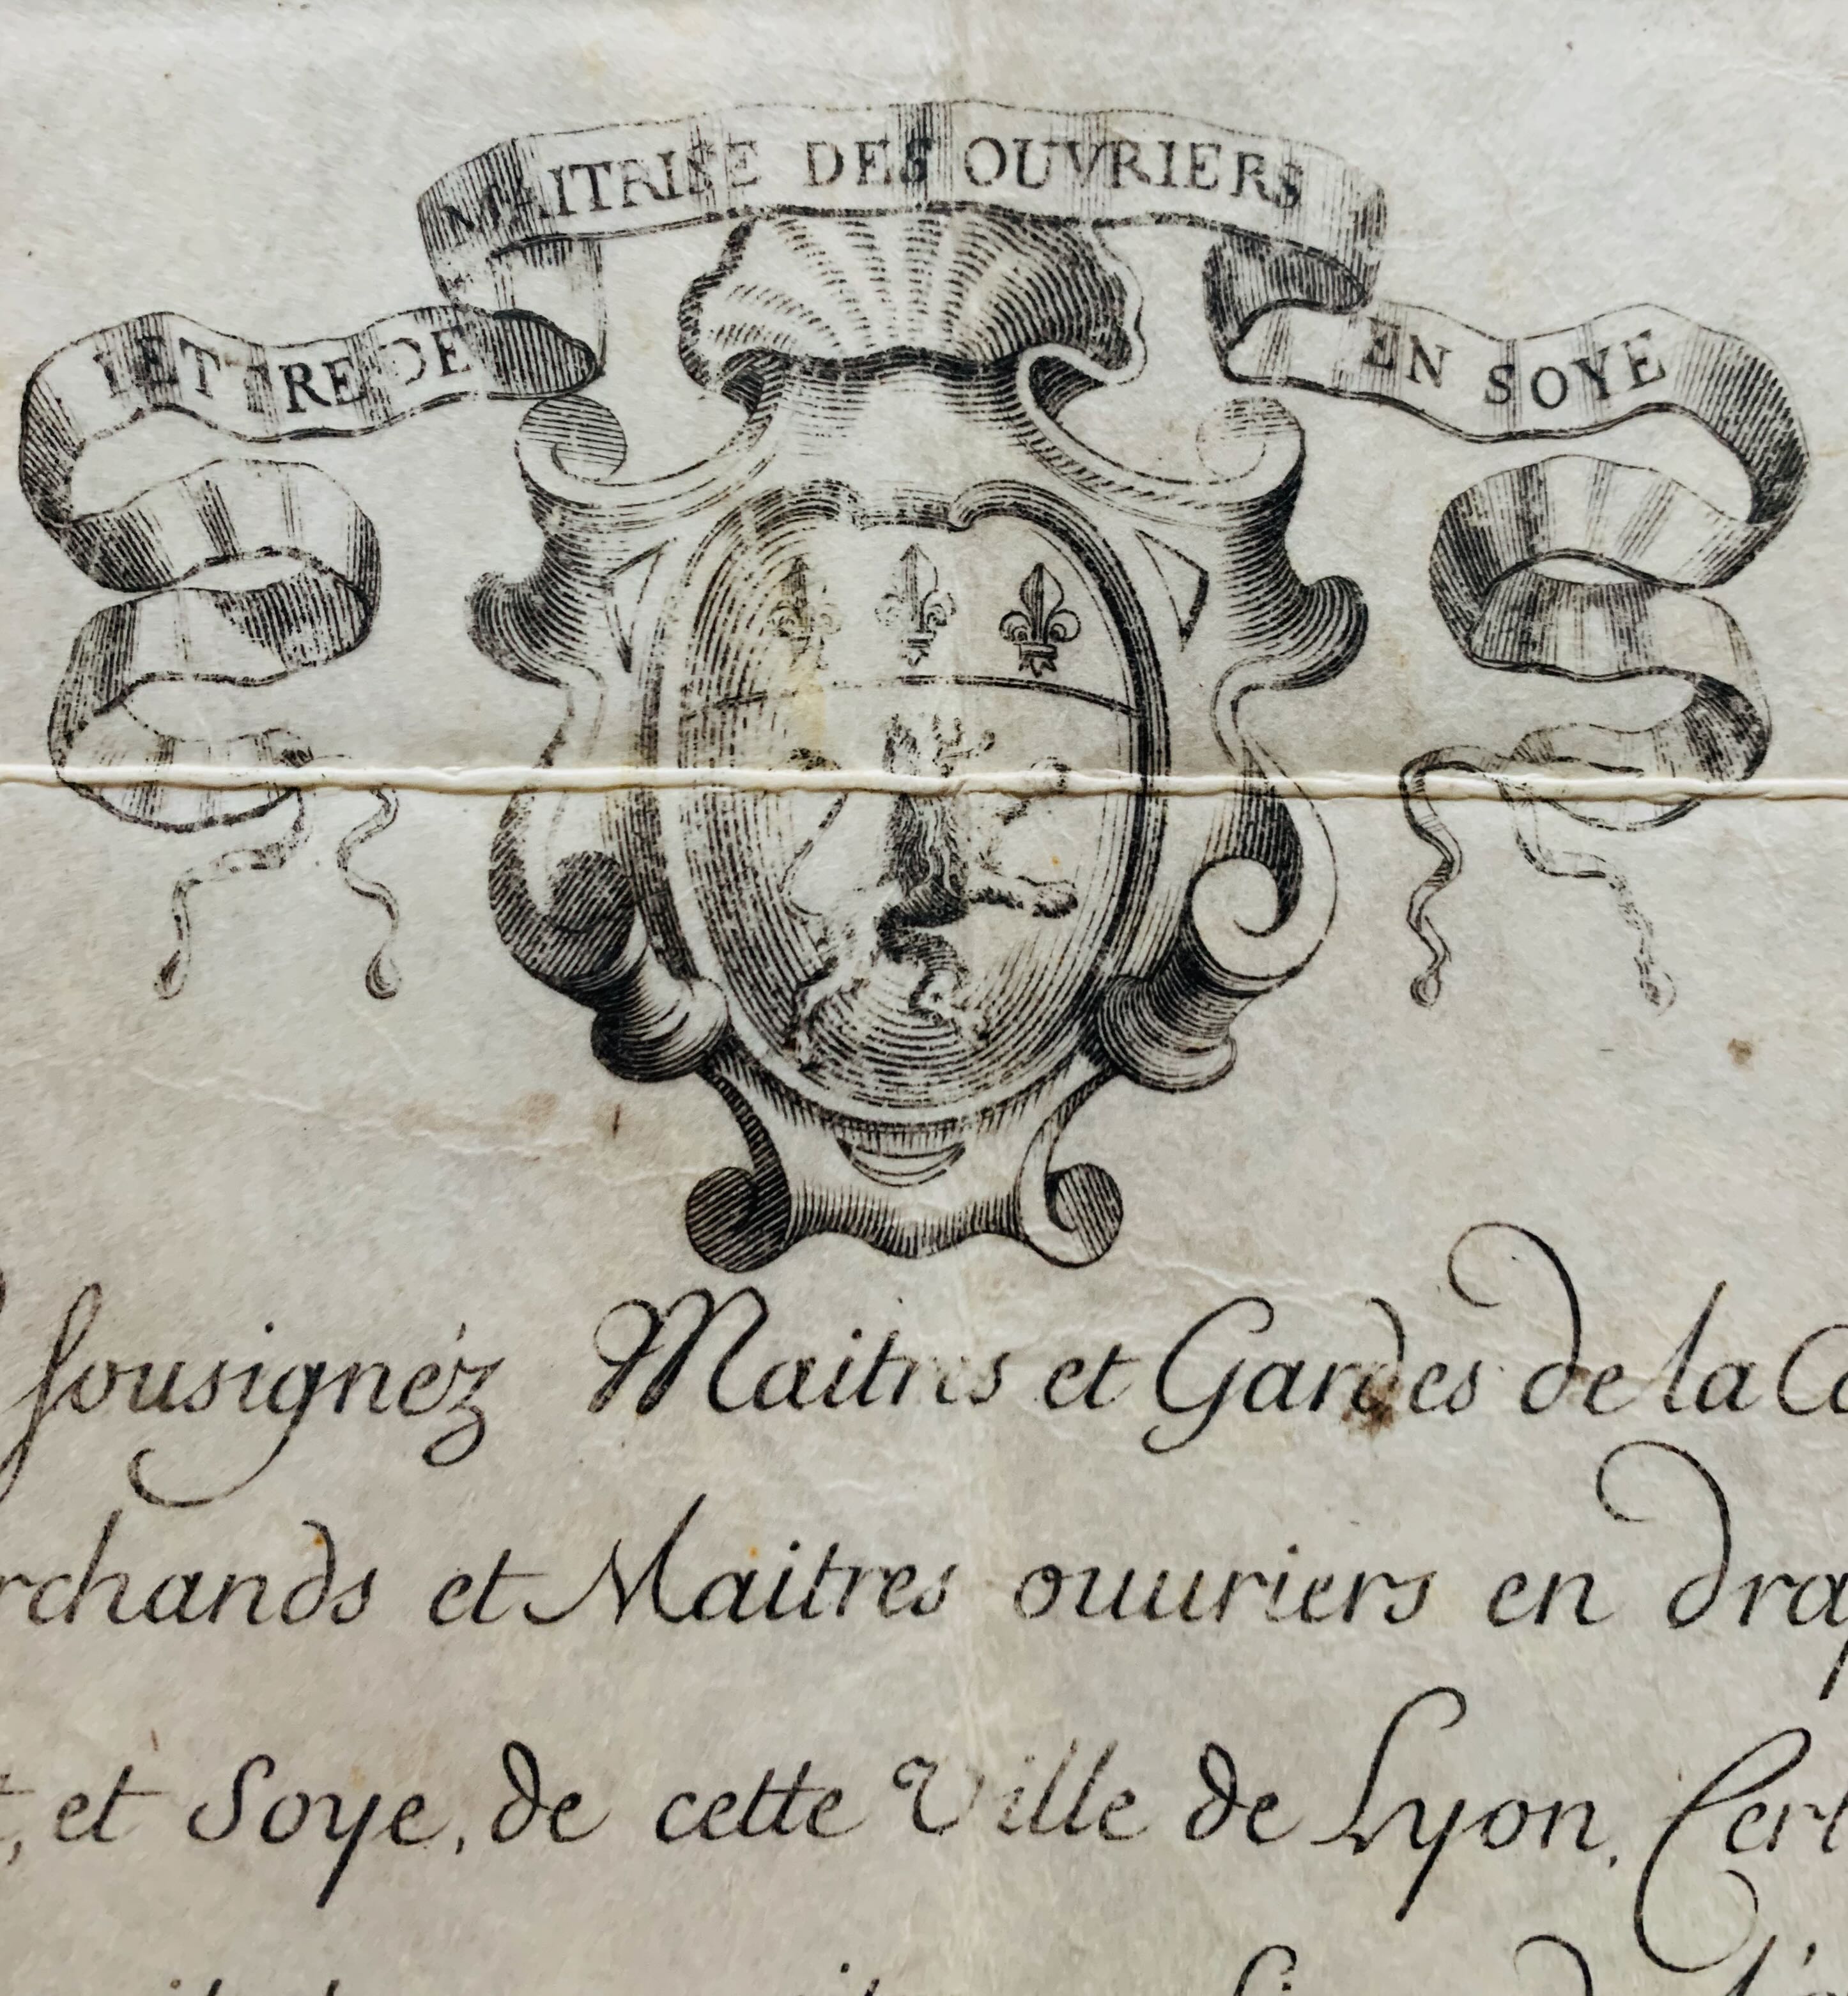 LETTRE DE MAITRISE DES OUVRIERS EN SOYE
sousignéz Maitres et Gardes de la
et Maitres ouuriers en
et Soye, de cette Ville de Lyon.